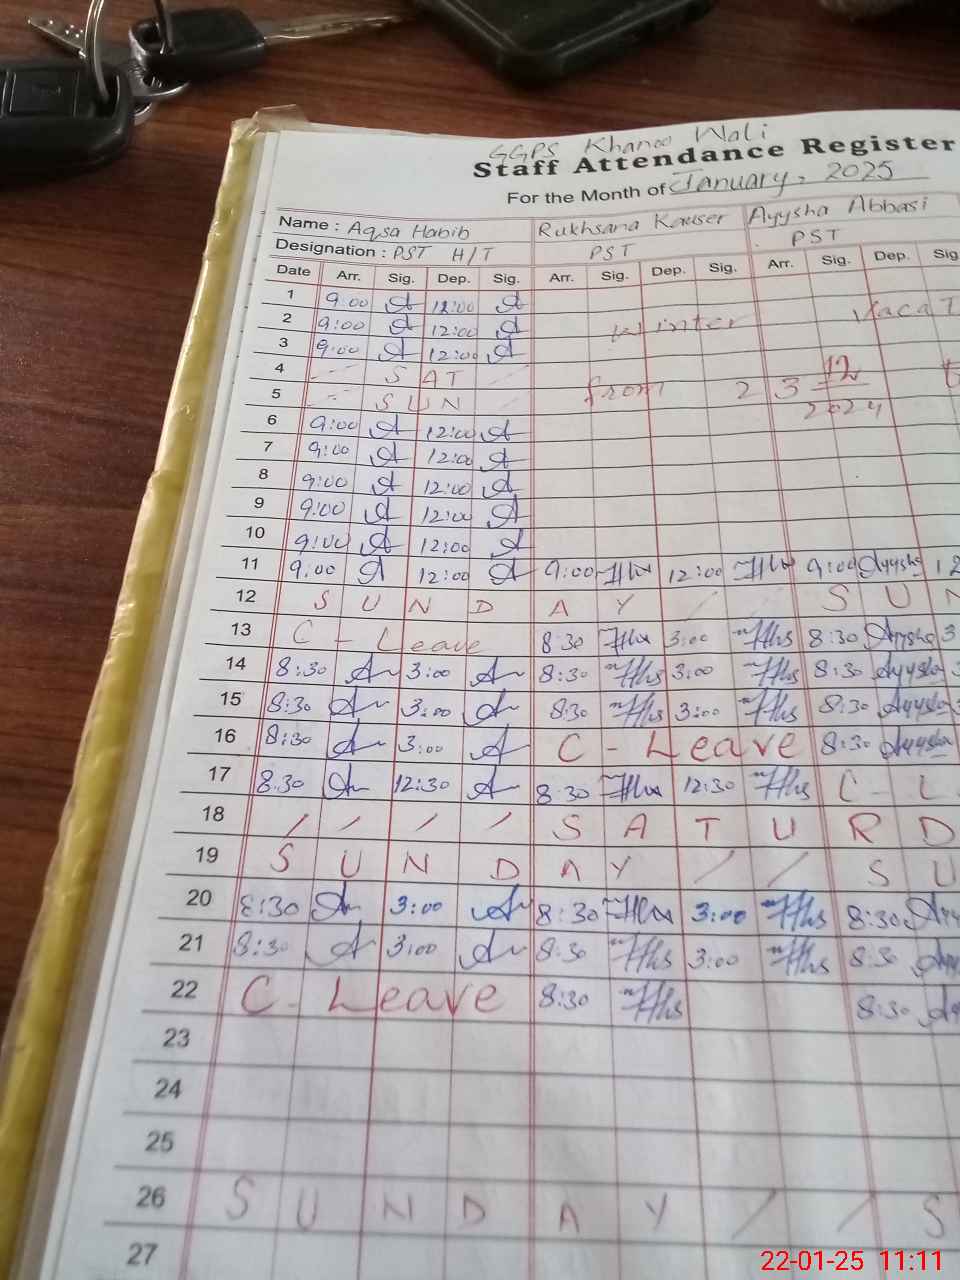 GGPS Khanoo Wali
Staff Attendance Register
For the Month of January, 2025
Name : Aqsa Habib Rukhsana Kauser Ayysha Abbasi
Designation : PST H/T PST PST
Date Arr. Sig. Dep. Sig. Arr. Sig. Dep. Sig. Arr. Sig. Dep. Sig
1 9:00 12:00
2 9:00 12:00 Winter Vacat
3 9:00 12:00
4 SAT from 23 12
5 SUN 2024
6 9:00 12:00
7 9:00 12:00
8 9:00 12:00
9 9:00 12:00
10 9:00 12:00
11 9:00 12:00 9:00 12:00 9:00 Ayysha 12
12 SUNDAY / / SUN
13 C - Leave 8:30 3:00 8:30 Ayysha 3
14 8:30 3:00 8:30 3:00 8:30 Ayysha 3
15 8:30 3:00 8:30 3:00 8:30 Ayysha 3
16 8:30 3:00 C - Leave 8:30 Ayysha
17 8:30 12:30 8:30 12:30 C - L
18 / / / / SATURD
19 SUNDAY / / SU
20 8:30 3:00 8:30 3:00 8:30
21 8:30 3:00 8:30 3:00 8:30
22 C - Leave 8:30 8:30
23
24
25
26 SUNDAY / / S
27
22-01-25 11:11